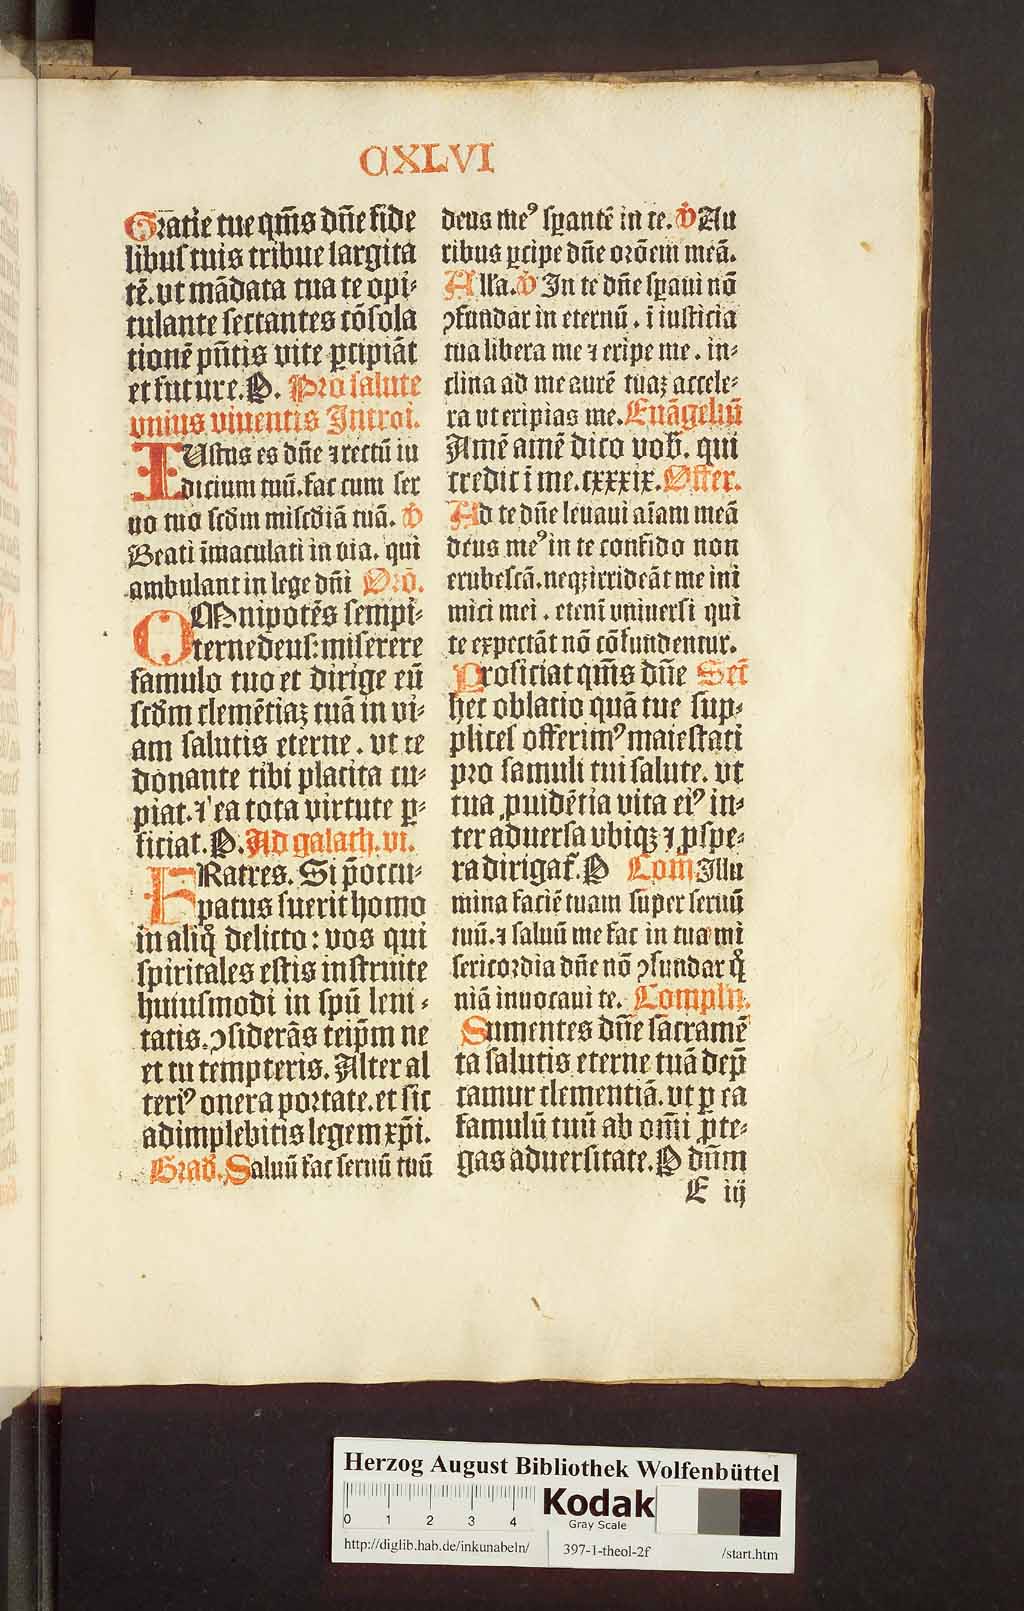 CXLVI
Gratie tue qm̄s dn̄e fide
libus tuis tribue largita
tē. vt mādata tua te opi⸗
tulante sectantes cōsola
tionē pn̄tis vite ꝑcipiāt
et future. P. Pro salute
vnius viuentis Introi.
IUstus es dn̄e ⁊ rectū iu
dicium tuū. fac cum ser
uo tuo scd̄m misc̄diā tuā. v̄
Beati īmaculati in via. qui
ambulant in lege dn̄i Orō.
OMnipotēs sempi⸗
terne deus: miserere
famulo tuo et dirige eū
scd̄m clemētiaꝫ tuā in vi⸗
am salutis eterne. vt te
donante tibi placita cu⸗
piat. ⁊ ea tota virtute ꝑ⸗
ficiat. P. Ad galath. vi.
FRatres. Si p̄occu⸗
patus fuerit homo
in aliq̊ delicto: vos qui
spiritales estis instruite
huiusmodi in spū leni⸗
tatis. ↄsiderās teip̄m ne
et tu tempteris. Alter al
teriꝰ onera portate. et sic
adimplebitis legem xp̄i.
Grad̄. Saluū fac seruū tuū
deus meꝰ sꝑantē in te. v̄ Au
ribus ꝑcipe dn̄e orōem meā.
All'a. v̄ In te dn̄e sꝑaui nō
ↄfundar in eternū. ī iusticia
tua libera me ⁊ eripe me. in⸗
clina ad me aurē tuaꝫ accele⸗
ra vt eripias me. Euāgeliū
Amē amē dico vob̄. qui
credit ī me. cxxxix. Offer.
Ad te dn̄e leuaui aīam meā
deus meꝰ in te confido non
erubescā. neqꝫ irrideāt me ini
mici mei. etenī vniuersi qui
te expectāt nō cōfundentur.
Proficiat qm̄s dn̄e Sec̄t
hec oblatio quā tue sup⸗
plices offerimꝰ maiestati
pro famuli tui salute. vt
tua ꝓuidētia vita eiꝰ in⸗
ter aduersa vbiqꝫ ⁊ ꝓspe⸗
ra dirigat̄. P Com̄ Illu
mina faciē tuam super seruū
tuū. ⁊ saluū me fac in tua mi
sericordia dn̄e nō ↄfundar q̊
niā inuocaui te. Compln̄.
Sumentes dn̄e sacramē
ta salutis eterne tuā dep̄
camur clementiā. vt ꝑ ea
famulū tuū ab om̄i ꝓte⸗
gas aduersitate. P dn̄m
E iij
Herzog August Bibliothek Wolfenbüttel
0 1 2 3 4
Kodak
Gray Scale
http://diglib.hab.de/inkunabeln/ 397-1-theol-2f /start.htm